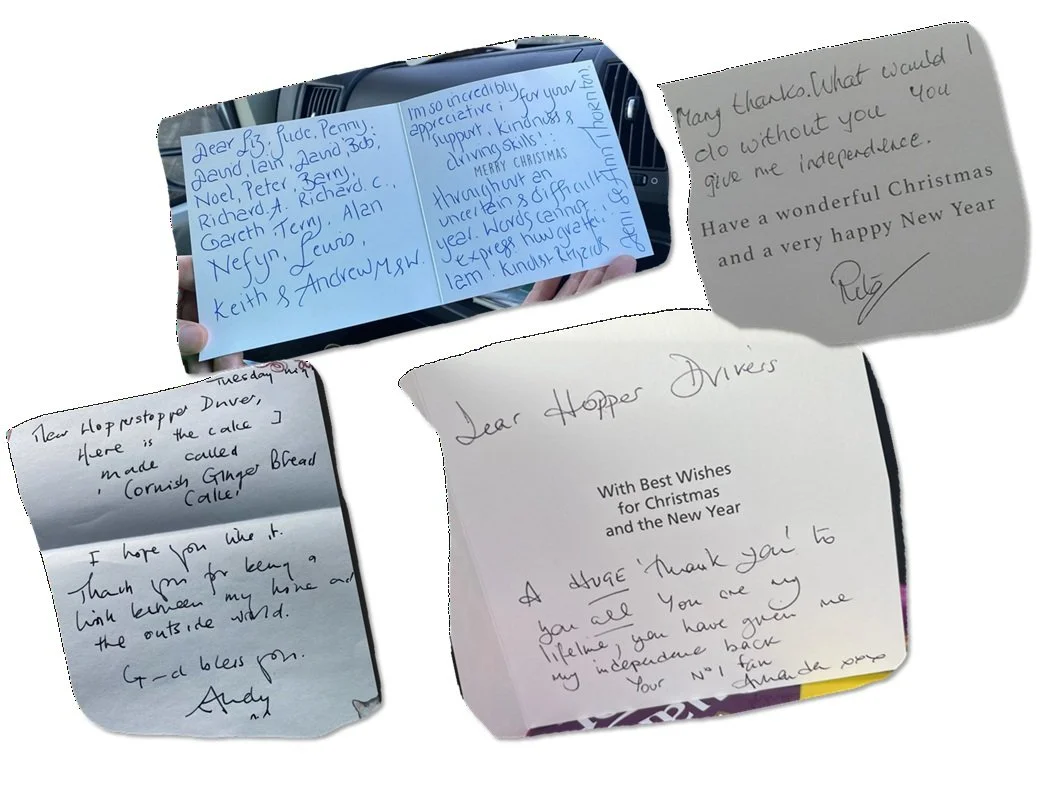 Dear Liz, Jude, Penny,
David, Iain, David, Bob,
Noel, Peter, Barny,
Richard.A, Richard.C.,
Gareth, Terry, Alan
Nefyn, Lewis,
Keith & Andrew M & W.
I'm so incredibly
appreciative; for your
support, kindness &
driving skills!:
MERRY CHRISTMAS
throughout an
uncertain & difficult
year. Words cannot
express how grateful
I am! Kindest Regards
Jeni & Ann Thornton.
Many thanks. What would I
do without you You
give me independence.
Have a wonderful Christmas
and a very happy New Year
Rita
Tuesday night
Dear Hopperstopper Driver,
Here is the cake I
made called
'Cornish Ginger Bread
Cake'
I hope you like it.
Thank you for being a
link between my home and
the outside world.
G-d bless you.
Andy
Dear Hopper Drivers
With Best Wishes
for Christmas
and the New Year
A HUGE 'Thank you' to
you all You are my
lifeline, you have given me
my independence back
Your No 1 fan
Amanda xxxx